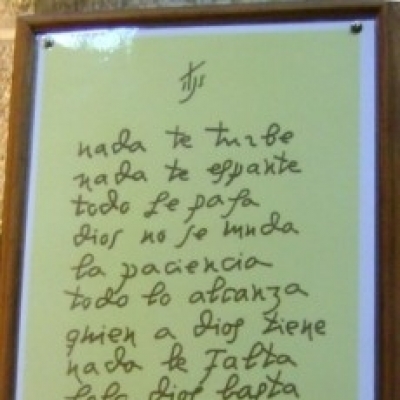 jhs
nada te turbe
nada te espante
todo se pasa
dios no se muda
la paciencia
todo lo alcanza
quien a dios tiene
nada le falta
solo dios basta